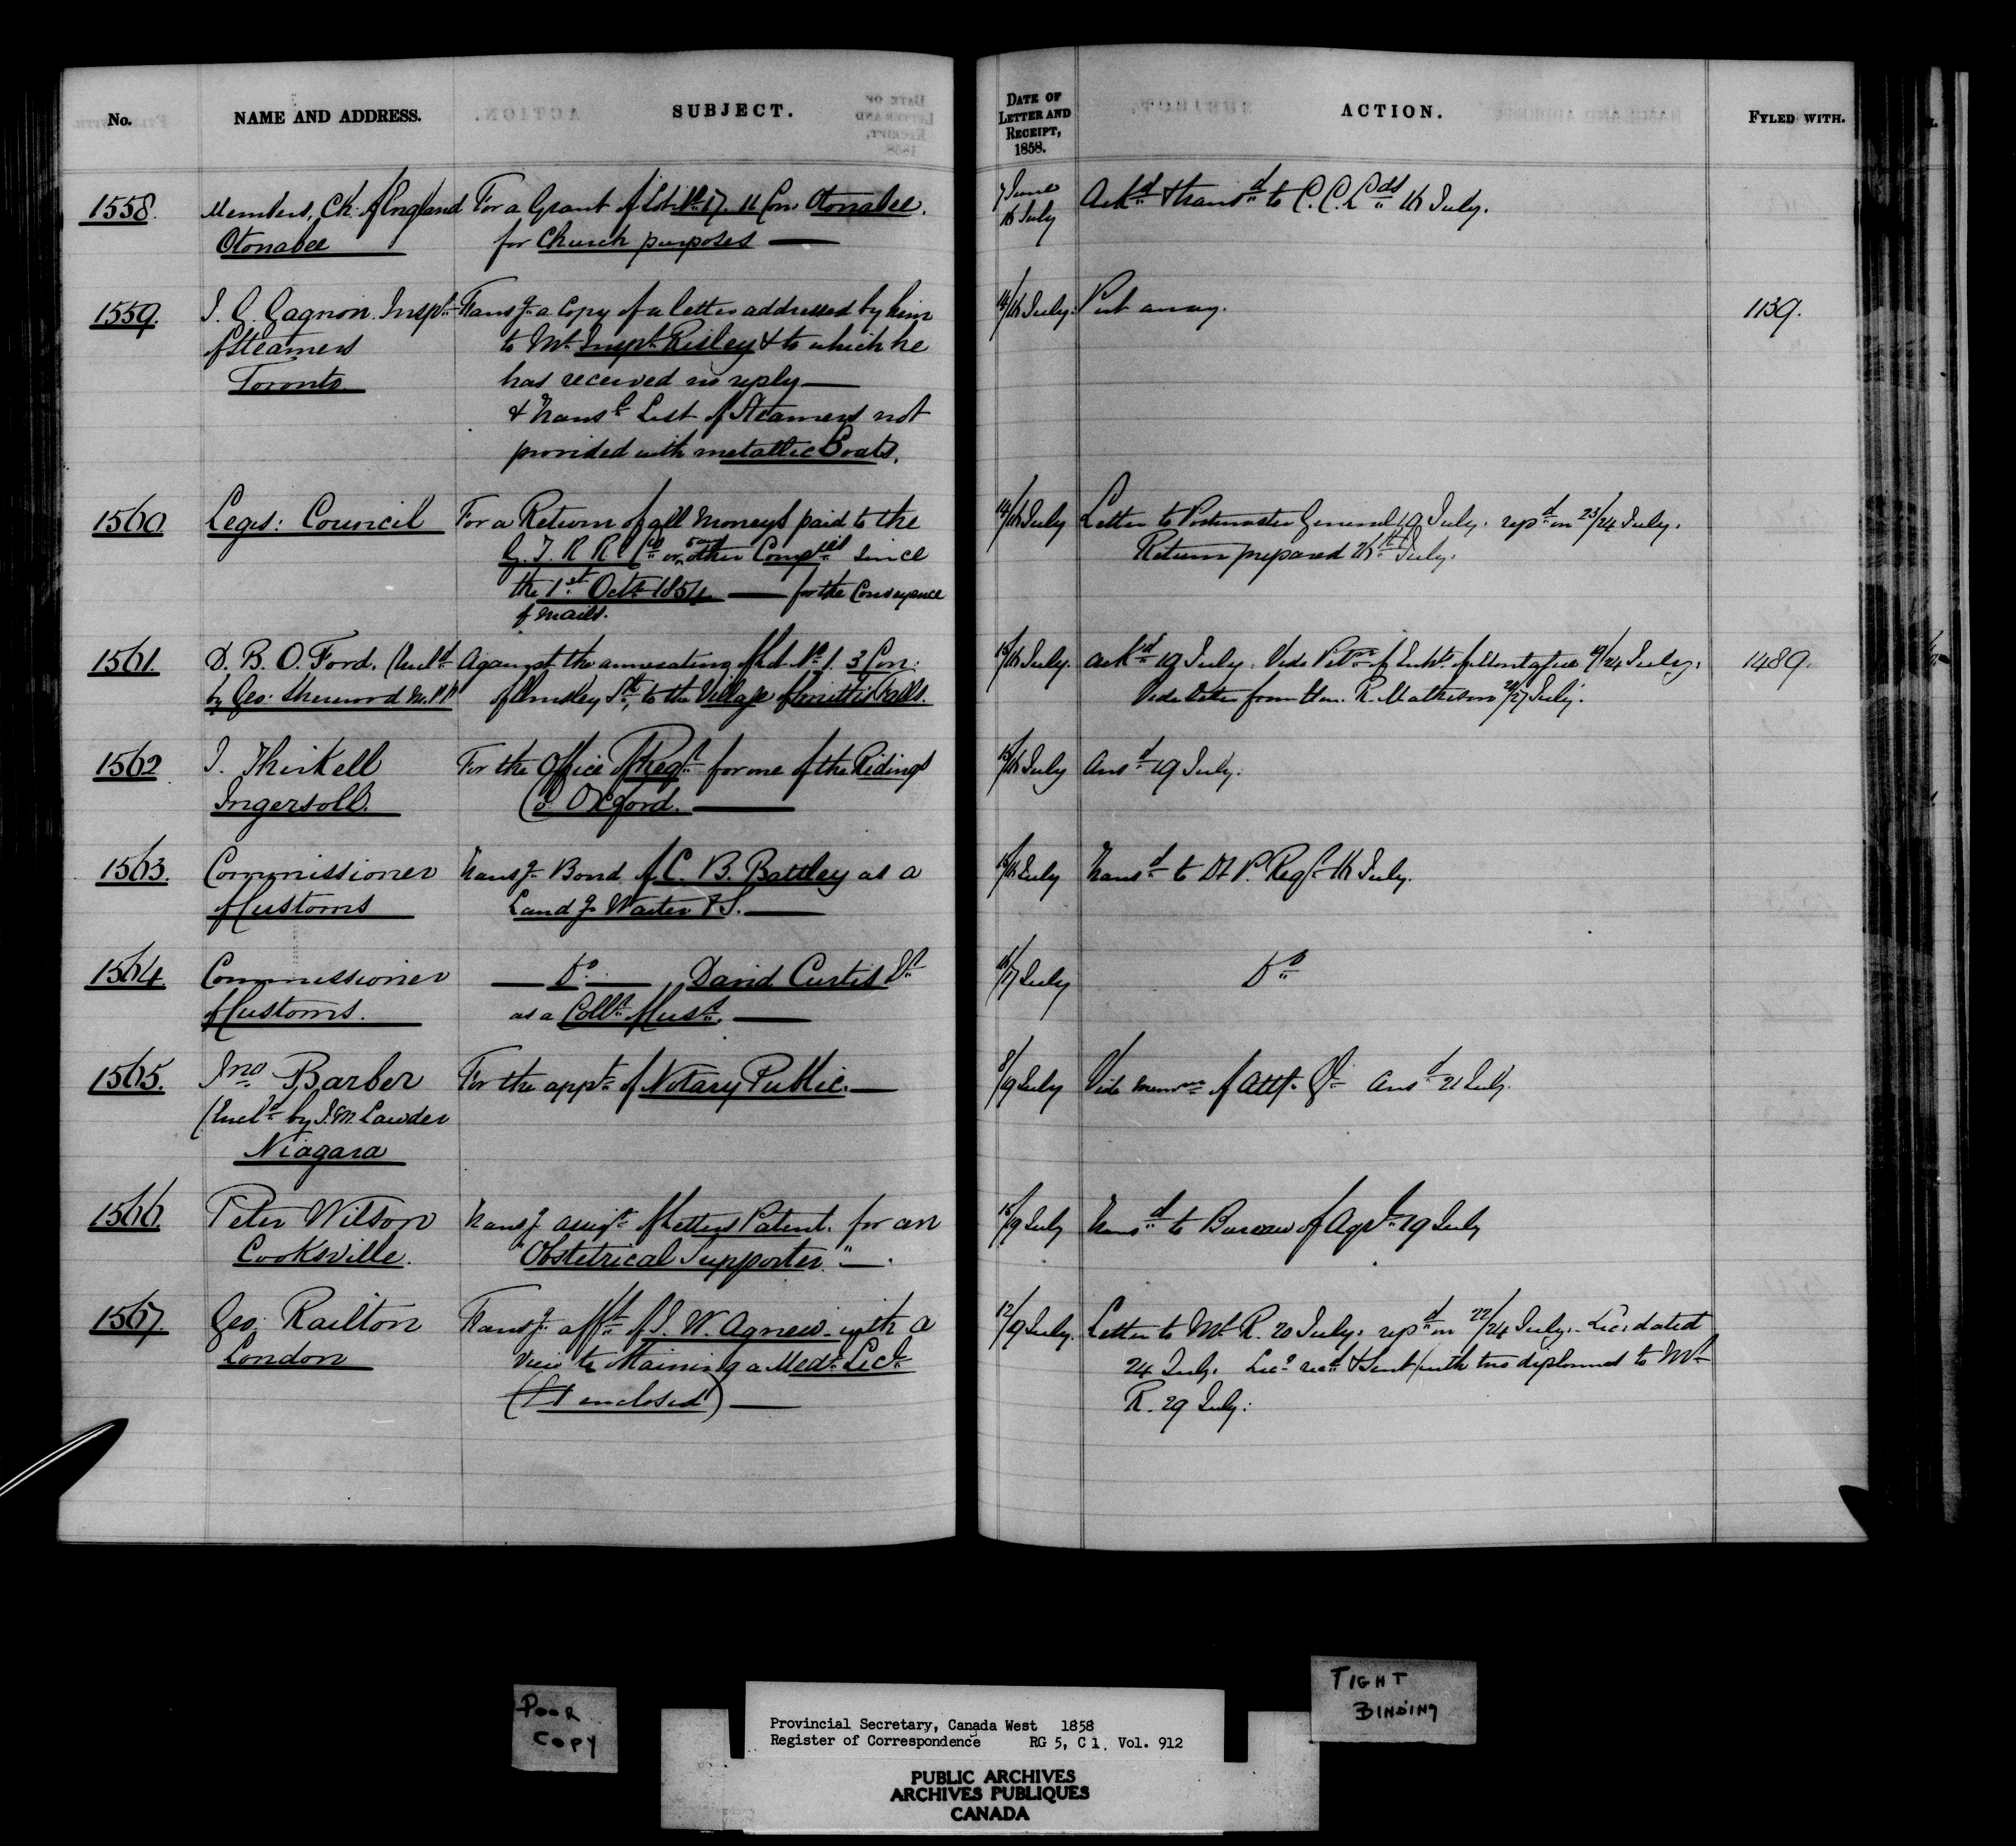 No.
NAME AND ADDRESS.
SUBJECT.
DATE OF LETTER AND RECEIPT, 1858.
ACTION.
FYLED WITH.
1558. Members, Ch. of England For a Grant of Lot No. 17. 11 Con Otonabee. 7 June Ackd. & transd. to C. C. Lds 16 July.
Otonabee for Church purposes — 16 July
1559. J. G. Gagnon Inspr. Transg. a Copy of a letter addressed by him 14/16 July. Put away. 1139.
of Steamers to Mr. Inspr. Risley & to which he
Toronto has received no reply —
& Transg. List of Steamers not
provided with metallic Boats.
1560 Legis: Council For a Return of all Moneys paid to the 14/16 July Letter to Postmaster General 19 July. repd. on 23/24 July.
G. T. R R. Co. or any other Compies since Return prepared 26th July.
the 1st. Octr. 1854 — for the Conveyance
of mails.
1561. D. B. O. Ford. (Encld. Against the annexating of Lot No. 1. 3 Con: 15/16 July. Ackd. 19 July. Vide Petn. of Inhts. of Montague 9/24 July. 1489.
by Geo: Sherwood M.P.P. of Elmsley Sth, to the Village of Smith's Falls. Vide letter from Hon. R. Matheson 26/27 July.
1562 J. Thirkell For the Office of Regr. for one of the Ridings 15/16 July Ansd. 19 July.
Ingersoll. Co Oxford. —
1563. Commissioner Transg. Bond of C. B. Battley as a 15/16 July Transd. to Dt P. Regr. 16 July.
of Customs Landg. Waiter &S. —
1564. Commissioner — Do. — David Curtis 16/17 July Do
of Customs. as a Collr. of Cust. —
1565. Jno Barber For the appt. of Notary Public. — 8/19 July Vide memm. of Atty. Gl. Ansd. 21 July.
(Encld. by J. M. Lawder
Niagara
1566. Peter Wilson Transg. assigt. of Letters Patent. for an 15/19 July Transd. to Bureau of Agre. 19 July
Cooksville. "Obstetrical Supporter." — .
1567. Geo. Railton Transg. afft. of J. W. Agnew with a 12/19 July. Letter to Mr. R. 20 July. repd. on 22/24 July. Lic: dated
London view to obtaining a Medl. Lice. 24 July. Lice. recd. & sent (with two diplomas to Mr.
( enclosed) — R. 29 July:
POOR
COPY
TIGHT
BINDING
Provincial Secretary, Canada West 1858
Register of Correspondence RG 5, C 1, Vol. 912
PUBLIC ARCHIVES
ARCHIVES PUBLIQUES
CANADA